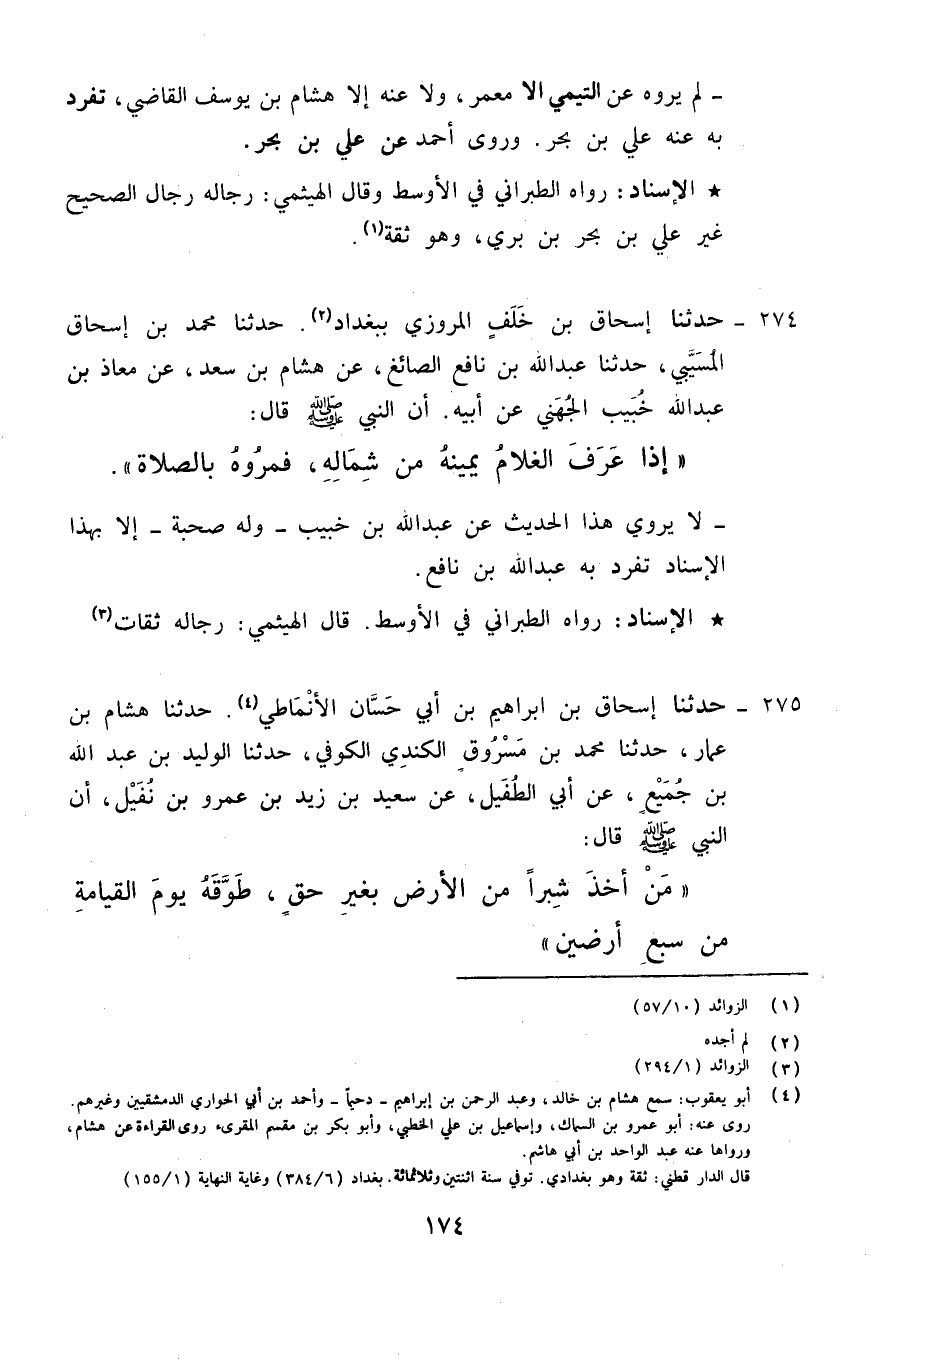 ـ لم يروه عن التيمي الا معمر، ولا عنه إلا هشام بن يوسف القاضي، تفرد
به عنه علي بن بحر. وروى أحمد عن علي بن بحر.
★ الإسناد: رواه الطبراني في الأوسط وقال الهيثمي: رجاله رجال الصحيح
غير علي بن بحر بن بري، وهو ثقة(١).
٢٧٤ ـ حدثنا إسحاق بن خَلَفٍ المروزي ببغداد(٢). حدثنا محمد بن إسحاق
المُسَيَّبي، حدثنا عبدالله بن نافع الصائغ، عن هشام بن سعد، عن معاذ بن
عبدالله خُبَيب الجُهَني عن أبيه. أن النبي ﷺ قال:
« إذا عَرَفَ الغلامُ يمينهُ من شِمَالِهِ، فمرُوهُ بالصلاة».
ـ لا يروي هذا الحديث عن عبدالله بن خبيب ـ وله صحبة ـ إلا بهذا
الإسناد تفرد به عبدالله بن نافع.
★ الإسناد: رواه الطبراني في الأوسط. قال الهيثمي: رجاله ثقات(٣)
٢٧٥ ـ حدثنا إسحاق بن ابراهيم بن أبي حَسَّان الأنْمَاطي(٤). حدثنا هشام بن
عمار، حدثنا محمد بن مَسْرُوقٍ الكندِي الكوفي، حدثنا الوليد بن عبد الله
بن جُمَيْعٍ، عن أبي الطُفَيل، عن سعيد بن زيد بن عمرو بن نُفَيْل، أن
النبي ﷺ قال:
« مَنْ أخذَ شِبراً من الأرض بغيرِ حقٍ، طَوَّقَهُ يومَ القيامةِ
من سبعِ أرضين»
(١) الزوائد (٥٧/١٠)
(٢) لم أجده
(٣) الزوائد (٢٩٤/١)
(٤) أبو يعقوب: سمع هشام بن خالد، وعبد الرحمن بن إبراهيم ـ دحيماً ـ وأحمد بن أبي الحواري الدمشقيين وغيرهم.
روى عنه: أبو عمرو بن السماك، وإسماعيل بن علي الخطبي، وأبو بكر بن مقسم المقرىء روى القراءة عن هشام،
ورواها عنه عبد الواحد بن أبي هاشم.
قال الدار قطني: ثقة وهو بغدادي. توفي سنة اثنتين وثلاثمائة. بغداد (٣٨٤/٦) وغاية النهاية (١٥٥/١)
١٧٤